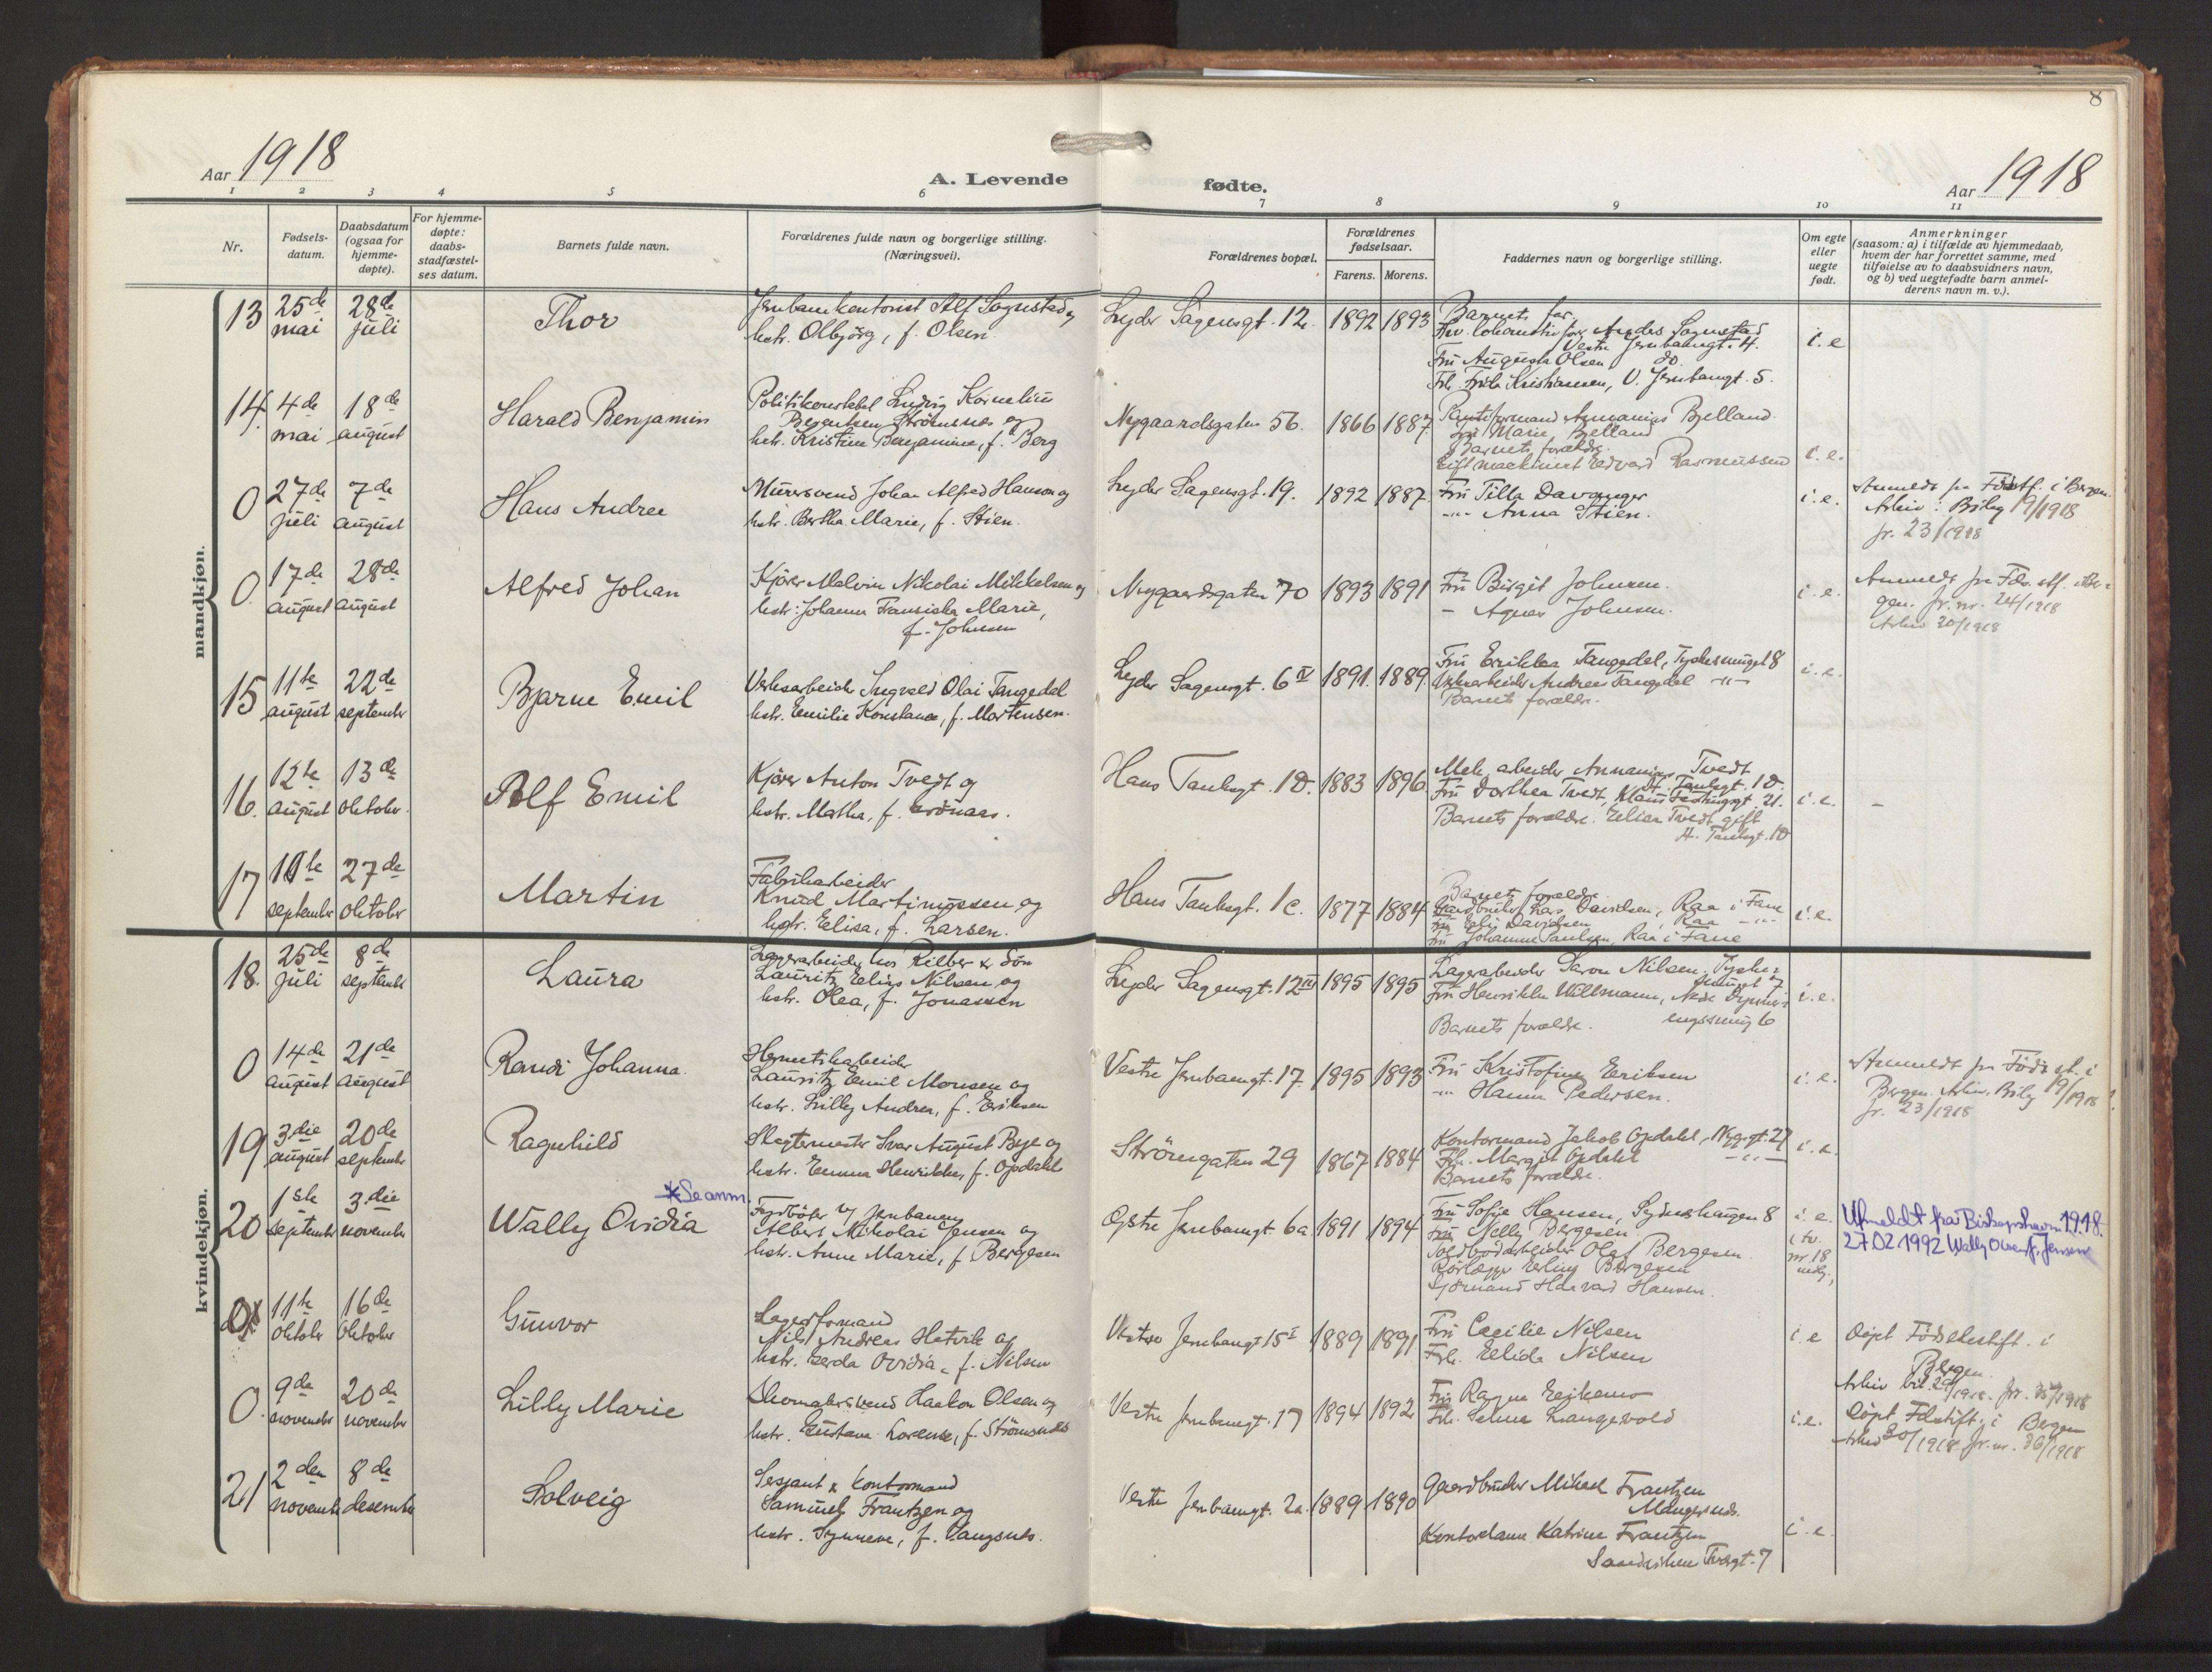 8
Aar 1918
A. Levende
fødte.
Aar 1918
1 2 3 4 5 6 7 8 9 10 11
Nr.
Fødsels-
datum.
Daabsdatum
(ogsaa for
hjemme-
døpte).
For hjemme-
døpte:
daabs-
stadfæstel-
ses datum.
Barnets fulde navn.
Forældrenes fulde navn og borgerlige stilling.
(Næringsvei).
Forældrenes bopæl.
Forældrenes
fødselsaar.
Farens. Morens.
Faddernes navn og borgerlige stilling.
Om egte
eller
uegte
født.
Anmerkninger
(saasom: a) i tilfælde av hjemmedaab,
hvem der har forrettet samme, med
tilføielse av to daabsvidners navn,
og b) ved uegtefødte barn anmel-
derens navn m. v.).
mandkjøn.
13 25de mai 28de juli
Thor
Jernbanekontorist Alf Sognstad og
hstr. Olbjörg, f. Olsen.
Lyder Sagensgt. 12. 1892 1893
Barnets far,
Anders Sognstad
Vestre Jernbanegt. 4.
Frü Augusta Olsen do.
Frk. Frida Kristiansen, V. Jernbangt. 5.
i. e
14. 4de mai 18de august
Harald Benjamin
Politikonstabel Ludvig Kornelius
Strömsnes og
hstr. Kristine Benjamine, f. Berg
Nygaardsgaten 56. 1866 1887
formand Annanias Bjelland.
Frü Marie Bjelland
Barnets forældre.
maskinist Edvard Rasmussen
i. e.
0 27de juli 7de august
Hans Andree
Murersvend Johan Alfred Hanson og
hstr. Bertha Marie, f. Stien.
Lyder Sagensgt. 19. 1892 1887
Frü Tilla Davanger
-"- Anna Stien.
i. e.
Anmeldt fra Födstf. i Bergen.
Arkiv: Bilag 19/1918
jr. 23/1918
0. 17de august 28de august
Alfred Johan
Kjörer Malvin Nikolai Mikkelsen og
hstr. Johanna Fransiska Marie,
f. Johnsen
Nygaardsgaten 70 1893 1891
Frü Birgit Johnsen.
- Agnes Johnsen.
i. e.
Anmeldt fra Föd. stf. i Ber-
gen. jr. nr. 24/1918
Arkiv 20/1918
15 11te august 22de september
Bjarne Emil
Verksarbeider Ingvald Olai Tangedal
hstr. Emilie Konstance, f. Martensen.
Lyder Sagensgt. 6 IV 1891. 1889.
Frü Erikka Tangedal, Tyskesmuget 8
Verksarbeider Andreas Tangedal -"-
Barnets forældre.
i. e.
16. 12te august 13de oktober.
Rolf Emil
Kjörer Anton Tvedt og
hstr. Martha, f. Grönaas.
Hans Tanksgt. 1D. 1883 1896
Mek. arbeider Annanias Tvedt
H. Tanksgt. 1D.
Frü Dorthea Tvedt, 21.
Barnets forældre. Tvedt, gift
H. Tanksgt. 1D
i. e. -
17 10te september 27de oktober
Martin
Fabrikarbeider
Knud Martinussen og
hstr. Elisa, f. Larsen.
Hans Tanksgt. 1c. 1877 1884
Barnets forældre.
Gaardbruker Lars Davidsen, Raa i Fane
Davidsen Raa -"-
Frü Johanne Paulsen, Raa i Fane
i. e.
kvindekjøn.
18. 25de juli 8de september
Laura
Lagerarbeider hos Rieber & Sön
Lauritz Elias Nilsen og
hstr. Olea, f. Jonassen
Lyder Sagensgt. 12 III 1895 1895
Lagerarbeider Saron Nilsen. Tyske-
smuget 7
Frü Henrikke Willmann, Nedre
6
Barnets forældre.
i. e.
0 14de august 21de august
Randi Johanna.
Hermetikarbeider
Lauritz Emil Monsen og
hstr. Lilly Andrea, f. Eriksen
Vestre Jernbanegt. 17. 1895 1893
Frü Kristofine Eriksen
-"- Hanna Pedersen.
i. e.
Anmeldt fra Födst. i
Bergen. Arkiv. Bilag 19/1918
jr. 23/1918
19 3die august 20de september
Ragnhild
Slagtermester Ivar August Bye og
hstr. Emma Henrikke, f. Opdahl
Strömgaten 29 1867 1884
Kontormand Jakob Opdahl, Nyg.gt. 27
Frk. Margit Opdahl -"-
Barnets forældre.
i. e.
20 1ste september 3die november
*Se anm.
Wally Ovidia
Fyrböter v/ Jernbanen
Albert Nikolai Jensen og
hstr. Anne Marie, f. Bergesen
Östre Jernbanegt. 6a 1891 1894
Frü Sofie Hansen, Sydneshaugen 8
Frü Nelly Bergesen,
Olaf Bergesen.
Rörlægger Erling Bergesen
Sjömand Haavard Hansen.
i. e.
nr. 18
Utmeldt fra Biskopshavn 1918.
27.02 1992 Wally Jensen
0 11te oktober 16de oktober
Gunvor
Lagerformand
Nils Andreas Hatvik og
hstr. Gerda Ovidia, f. Nilsen
Vestre Jernbanegt 15 I 1889 1891
Frü Cecilie Nilsen
Frk. Elida Nilsen
i. e
Döpt Födselsstift. i
Bergen.
Arkiv bil. 29/1918. jr. 35/1918
0. 9de november 20de november
Lilly Marie
Skomakersvend Haakon Olsen og
hstr. Gustava Lorense, f. Strömsnes
Vestre Jernbanegt. 17 1894 1892
Frü Ragna
Frk. Selma Langevold
i. e.
Döpt Fdstift. i Bergen
Arkiv 30/1918 jr. nr. 36/1918
21 2den november 8de desember
Solveig
Sersjant & kontormand
Samuel Frantzen og
hstr. Synneve, f. Vangsnes.
Vestre Jernbanegt. 2a. 1889 1890
Gaardbruker Mikael Frantzen
Mangersnes.
Kontordame Katrine Frantzen
Sandviken Tvergt. 7
i. e.